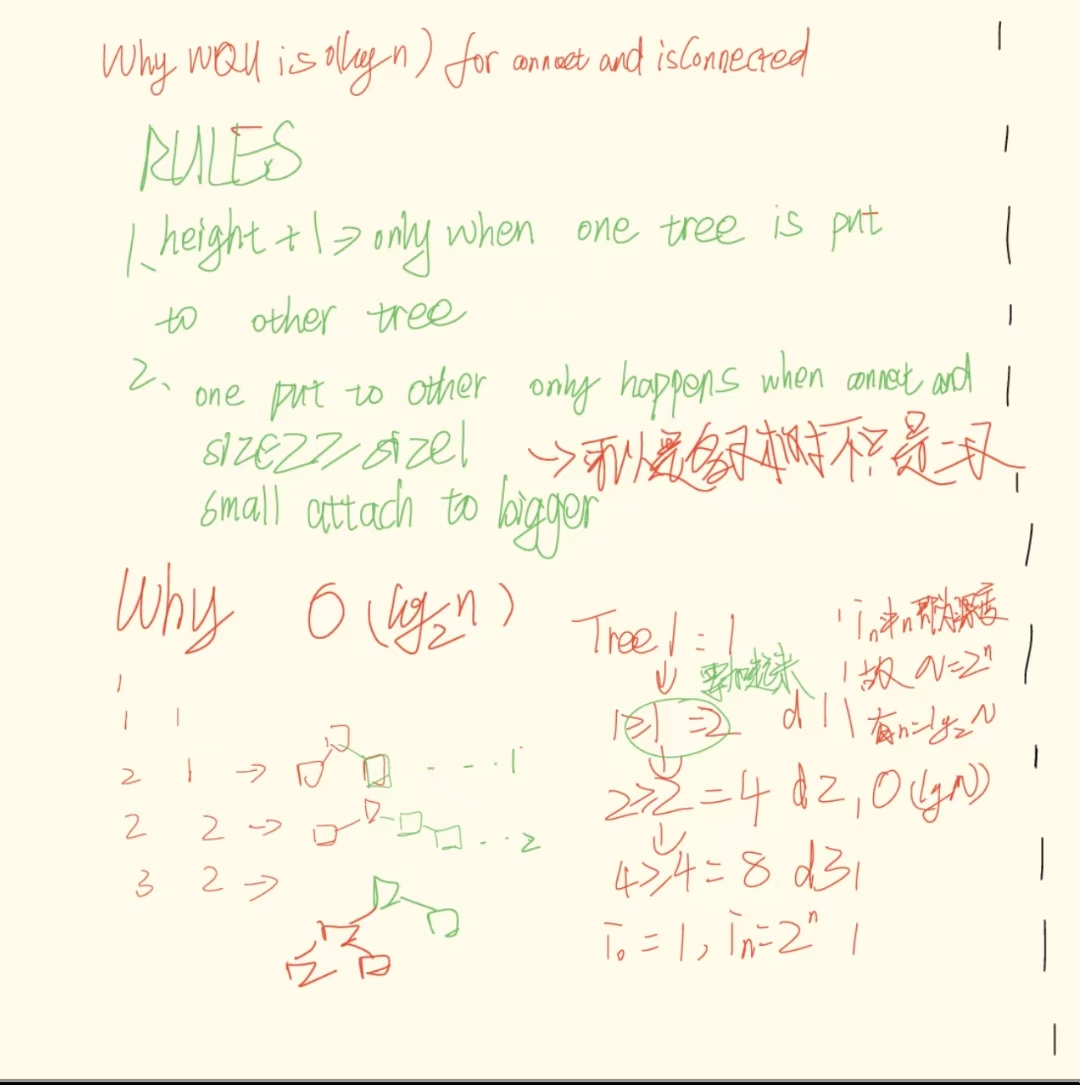 Why WQU is O(lg n) for connect and isConnected
RULES
1、height + 1 => only when one tree is put
to other tree
2、one put to other only happens when connect and
size2 ≥ size1
→ 所以是多叉树时不只是二叉
small attach to bigger
Why O(lg₂n)
1
1 1
2 1 → - - - · 1
2 2 → · - · · 2
3 2 →
Tree 1 : 1
↓ 要加起来
1 ≥ 1 = 2 d 1
↓
2 ≥ 2 = 4 d 2,
↓
4 ≥ 4 = 8 d 3
i₀ = 1, iₙ = 2ⁿ
故 N = 2ⁿ
有 n = lg₂N
O(lgN)